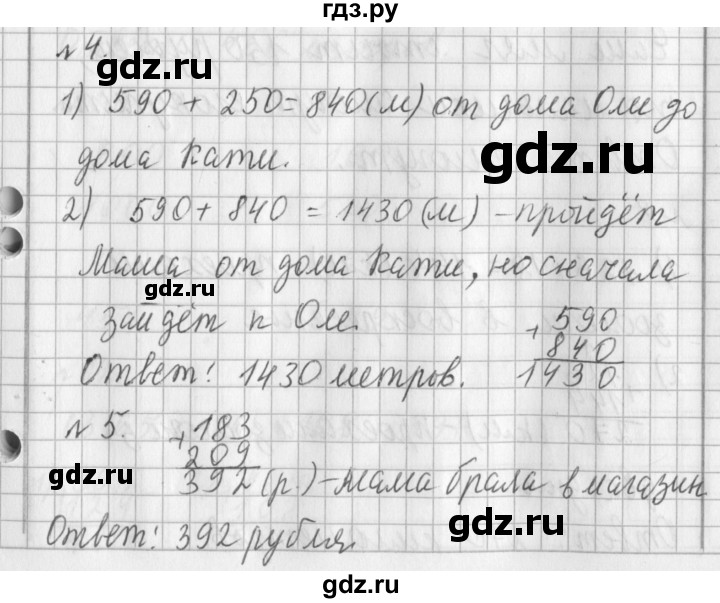 гдз.ру
№ 4.
gdz.ru
1) 590 + 250 = 840 (м) от дома Оли до
gdz.ru
дома Кати.
2) 590 + 840 = 1430 (м) - пройдёт
Маша от дома Кати, но сначала
gdz.ru
зайдёт к Оле.
+ 590
840
1430
Ответ: 1430 метров.
gdz.ru
№ 5.
+ 183
209
392 (р.) - мама брала в магазин
gdz.ru
gdz.ru
Ответ: 392 рубля.
gdz.ru